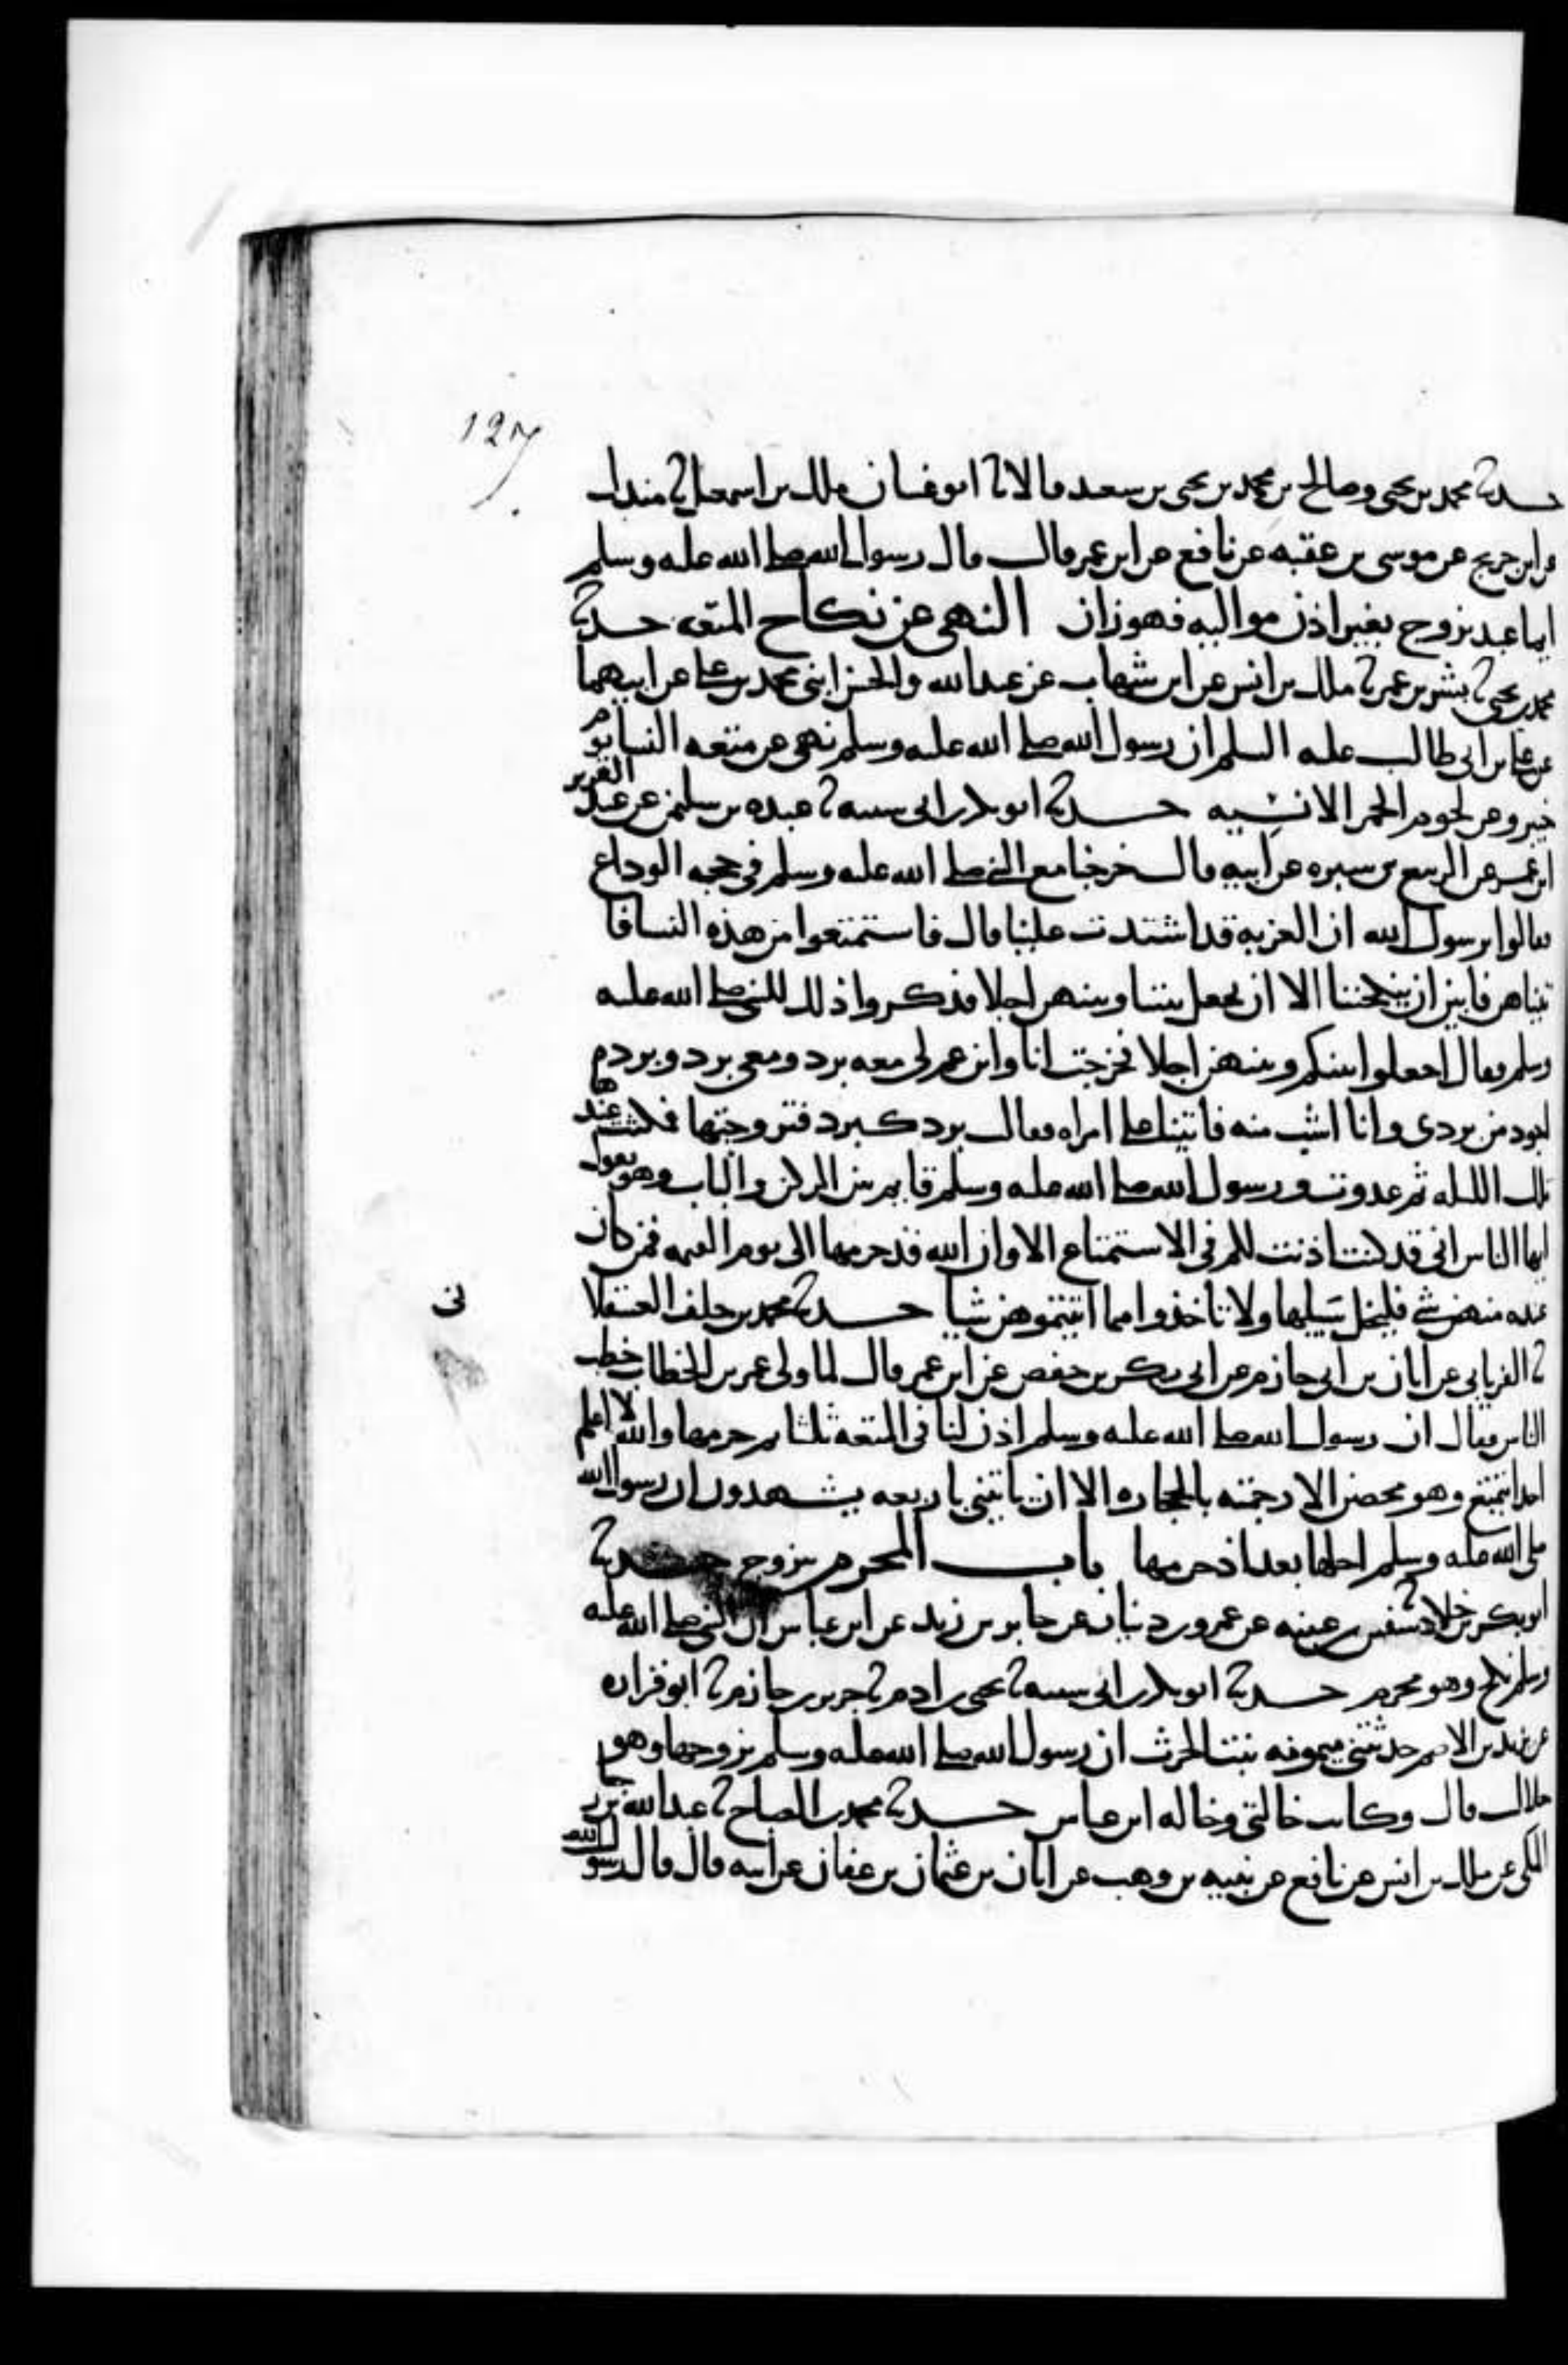 127
حدثنا محمد بن يحيى وصالح بن محمد بن يحيى بن سعيد قالا ثنا ابو غسان ملك بن اسمعيل ثنا مندل
عن ابن جريج عن موسى بن عقبه عن نافع عن ابن عمر قال قال رسول الله صلى الله عليه وسلم
ايما عبد تزوج بغير اذن مواليه فهو زان النهي عن نكاح المتعه حدثنا
محمد بن يحيى ثنا بشر بن عمر ثنا ملك بن انس عن ابن شهاب عن عبد الله والحسن ابني محمد بن علي عن ابيهما
عن علي بن ابي طالب عليه السلم ان رسول الله صلى الله عليه وسلم نهى عن متعه النسا يوم
خيبر وعن لحوم الحمر الانسيه حدثنا ابو بكر بن ابي شيبه ثنا عبده بن سليمن عن عبد العزيز
ابن عمر عن الربيع بن سبره عن ابيه قال خرجنا مع النبي صلى الله عليه وسلم في حجه الوداع
فقالوا يرسول الله ان العزبه قد اشتدت علينا قال فاستمتعوا من هذه النسا فا
تيناهن فابين ان ينكحننا الا ان نجعل بيننا وبينهن اجلا فذكروا ذلك للنبي صلى الله عليه
وسلم فقال اجعلوا بينكم وبينهن اجلا فخرجت انا وابن عم لي معه برد ومعي برد وبرده
اجود من بردي وانا اشب منه فاتينا على امراه فقالت برد كبرد فتزوجتها فمكثت عندها
تلك الليله ثم غدوت ورسول الله صلى الله عليه وسلم قايم بين الركن والباب وهو يقول
ايها الناس اني قد كنت اذنت لكم في الاستمتاع الا وان الله قد حرمها الى يوم القيمه فمن كان
عنده منهن شي فليخل سبيلها ولا تاخذوا مما اتيتموهن شيا حدثنا محمد بن خلف العسقلا
نى
ثنا الفريابي عن ابان بن ابي حازم عن ابي بكر بن حفص عن ابن عمر قال لما ولى عمر بن الخطاب خطب
الناس فقال ان رسول الله صلى الله عليه وسلم اذن لنا في المتعه ثلثا ثم حرمها والله لا اعلم
احدا يتمتع وهو محصن الا رجمته بالحجاره الا ان ياتيني باربعه يشهدون ان رسول الله
صلى الله عليه وسلم احلها بعد اذ حرمها باب المحرم يتزوج حدثنا
ابو بكر بن خلاد ثنا سفين بن عيينه عن عمرو بن دينار عن جابر بن زيد عن ابن عباس ان النبي صلى الله عليه
وسلم نكح وهو محرم حدثنا ابو بكر بن ابي شيبه ثنا يحيى بن ادم ثنا جرير بن حازم ثنا ابو فزاره
عن يزيد بن الاصم حدثتني ميمونه بنت الحرث ان رسول الله صلى الله عليه وسلم تزوجها وهو
حلال قال وكانت خالتي وخاله ابن عباس حدثنا محمد بن الصباح ثنا عبد الله بن رجا
المكي عن ملك بن انس عن نافع عن نبيه بن وهب عن ابان بن عثمان بن عفان عن ابيه قال قال رسول الله